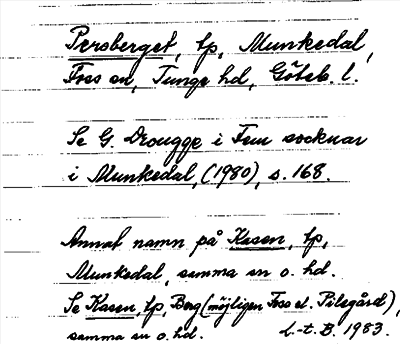 Persberget, tp, Munkedal,
Foss sn, Tunge hd, Göteb. l.
Se G. Drougge i Fem socknar
i Munkedal, (1980), s. 168.
Annat namn på Kasen, tp,
Munkedal, samma sn o. hd.
Se Kasen, tp, Berg (möjligen Foss el. Pilegård),
samma sn o. hd. L-t. B. 1983.